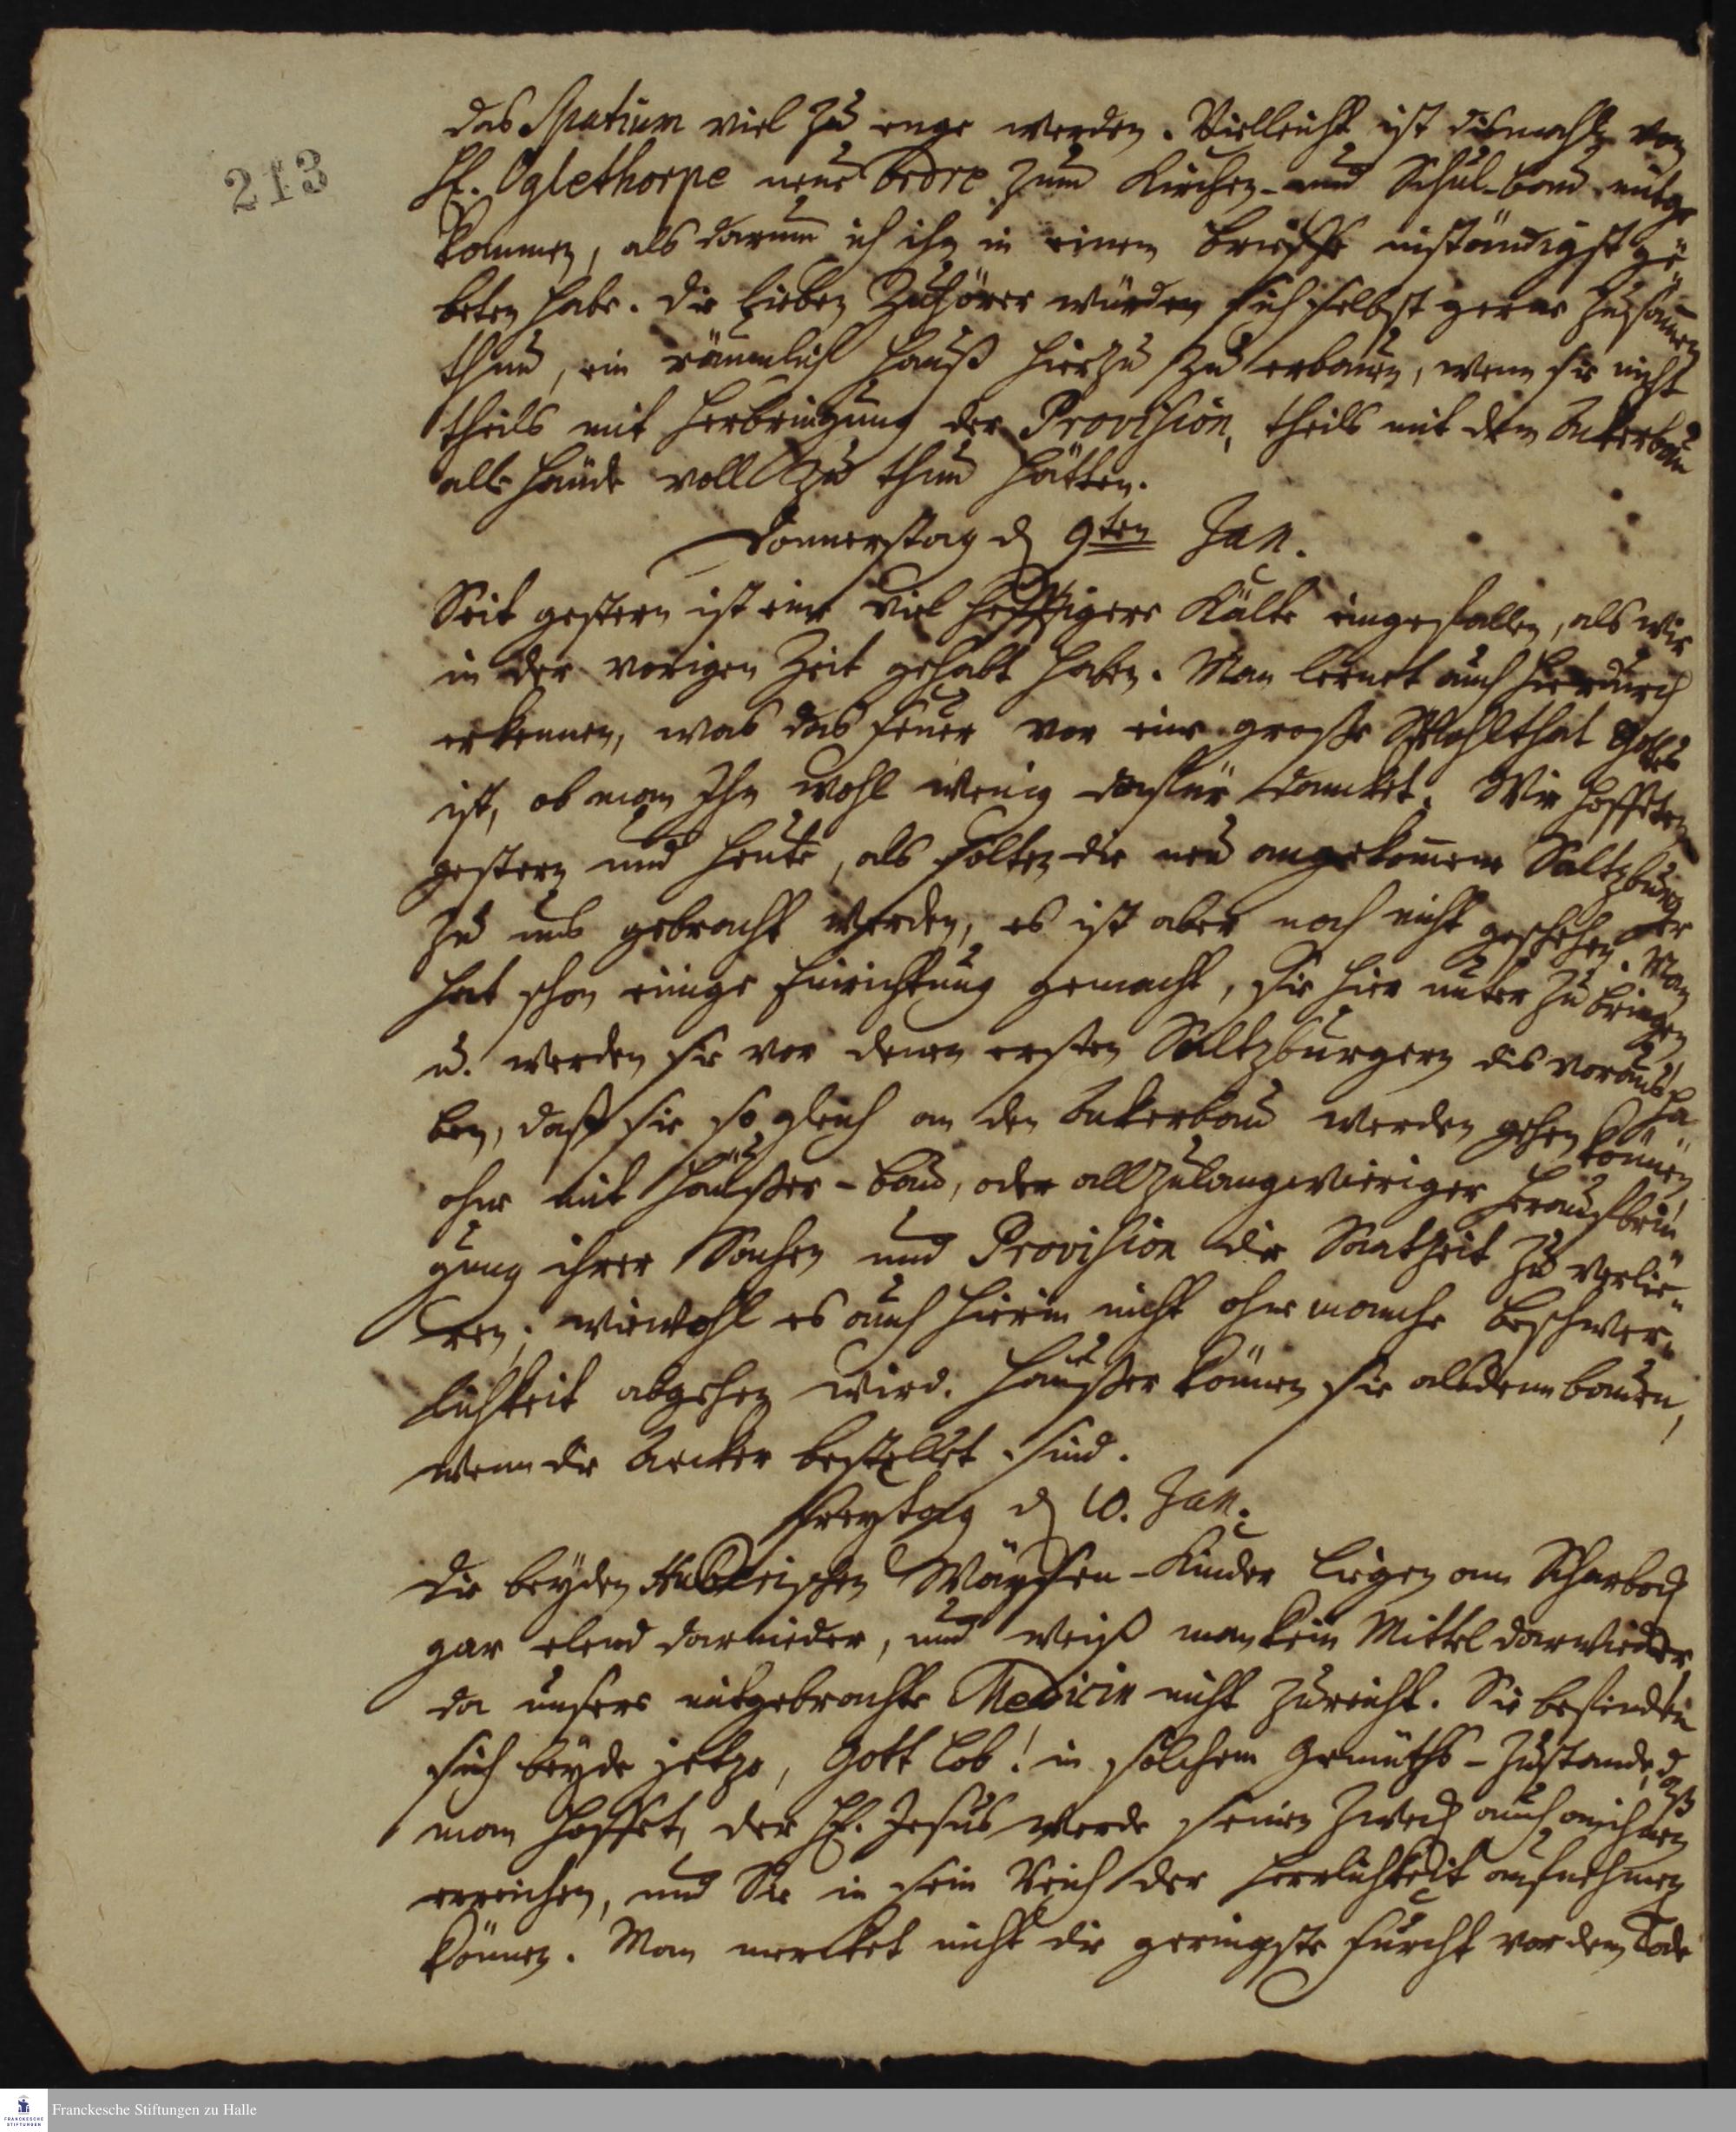 213
das Spatium viel zu enge werden. Vielleicht ist dismahl von
H. Oglethorpe neue Ordre zum Kirchen- und Schul-bau mitge
kommen, als darum ich ihn in einem Brieffe inständigst ge-
beten habe. Die lieben Zuhörer würden sich selbst gerne zusammen
thun, ein räumlich Hauß hierzu zu erbauen, wenn sie nicht
theils mit Herbringung der Provision, theils mit dem Ackerbau
alle Hände voll zu thun hätten.
Donnerstag d 9ten Jan.
Seit gestern ist eine viel hefftigere Kälte eingefallen, als wir
in der vorigen Zeit gehabt haben. Man lernet auch hierdurch
erkennen, was das Feuer vor eine große Wohlthat Gottes
ist, ob man Ihm wohl wenig dafür dancket. Wir hoffeten
gestern und heute, als solten die neu angekommene Saltzburger
zu uns gebracht werden, es ist aber noch nicht geschehen. Man
hat schon einige Einrichtung gemacht, sie hier unter zu bringen
u. werden sie vor denen ersten Saltzburgern das voraus ha-
ben, daß sie so gleich an den Ackerbau werden gehen können,
ohne mit Häußer-bau, oder allzulangwieriger Heraufbrin-
gung ihrer Sachen und Provision die Saatzeit zu verlie-
ren; wiewohl es auch hierin nicht ohne manche Beschwer-
lichkeit abgehen wird. Häußer können sie alsdenn bauen,
wenn die Aecker bestellet sind.
Freytag d 10. Jan.
Die beyden Waysen-Kinder liegen am Scharbock
gar elend darnieder, und weiß man kein Mittel darwieder,
da unsere mitgebrachte Medicin nicht zureicht. Sie befinden
sich beyde jetzo, Gott lob! in solchem Gemüths-Zustande, daß
man hoffet, der H. Jesus werde seinen Zweck auch an ihnen
erreichen, und Sie in sein Reich der Herrlichkeit aufnehmen
können. Man mercket nicht die geringste Furcht vor dem Tode
FRANCKESCHE STIFTUNGEN
Franckesche Stiftungen zu Halle